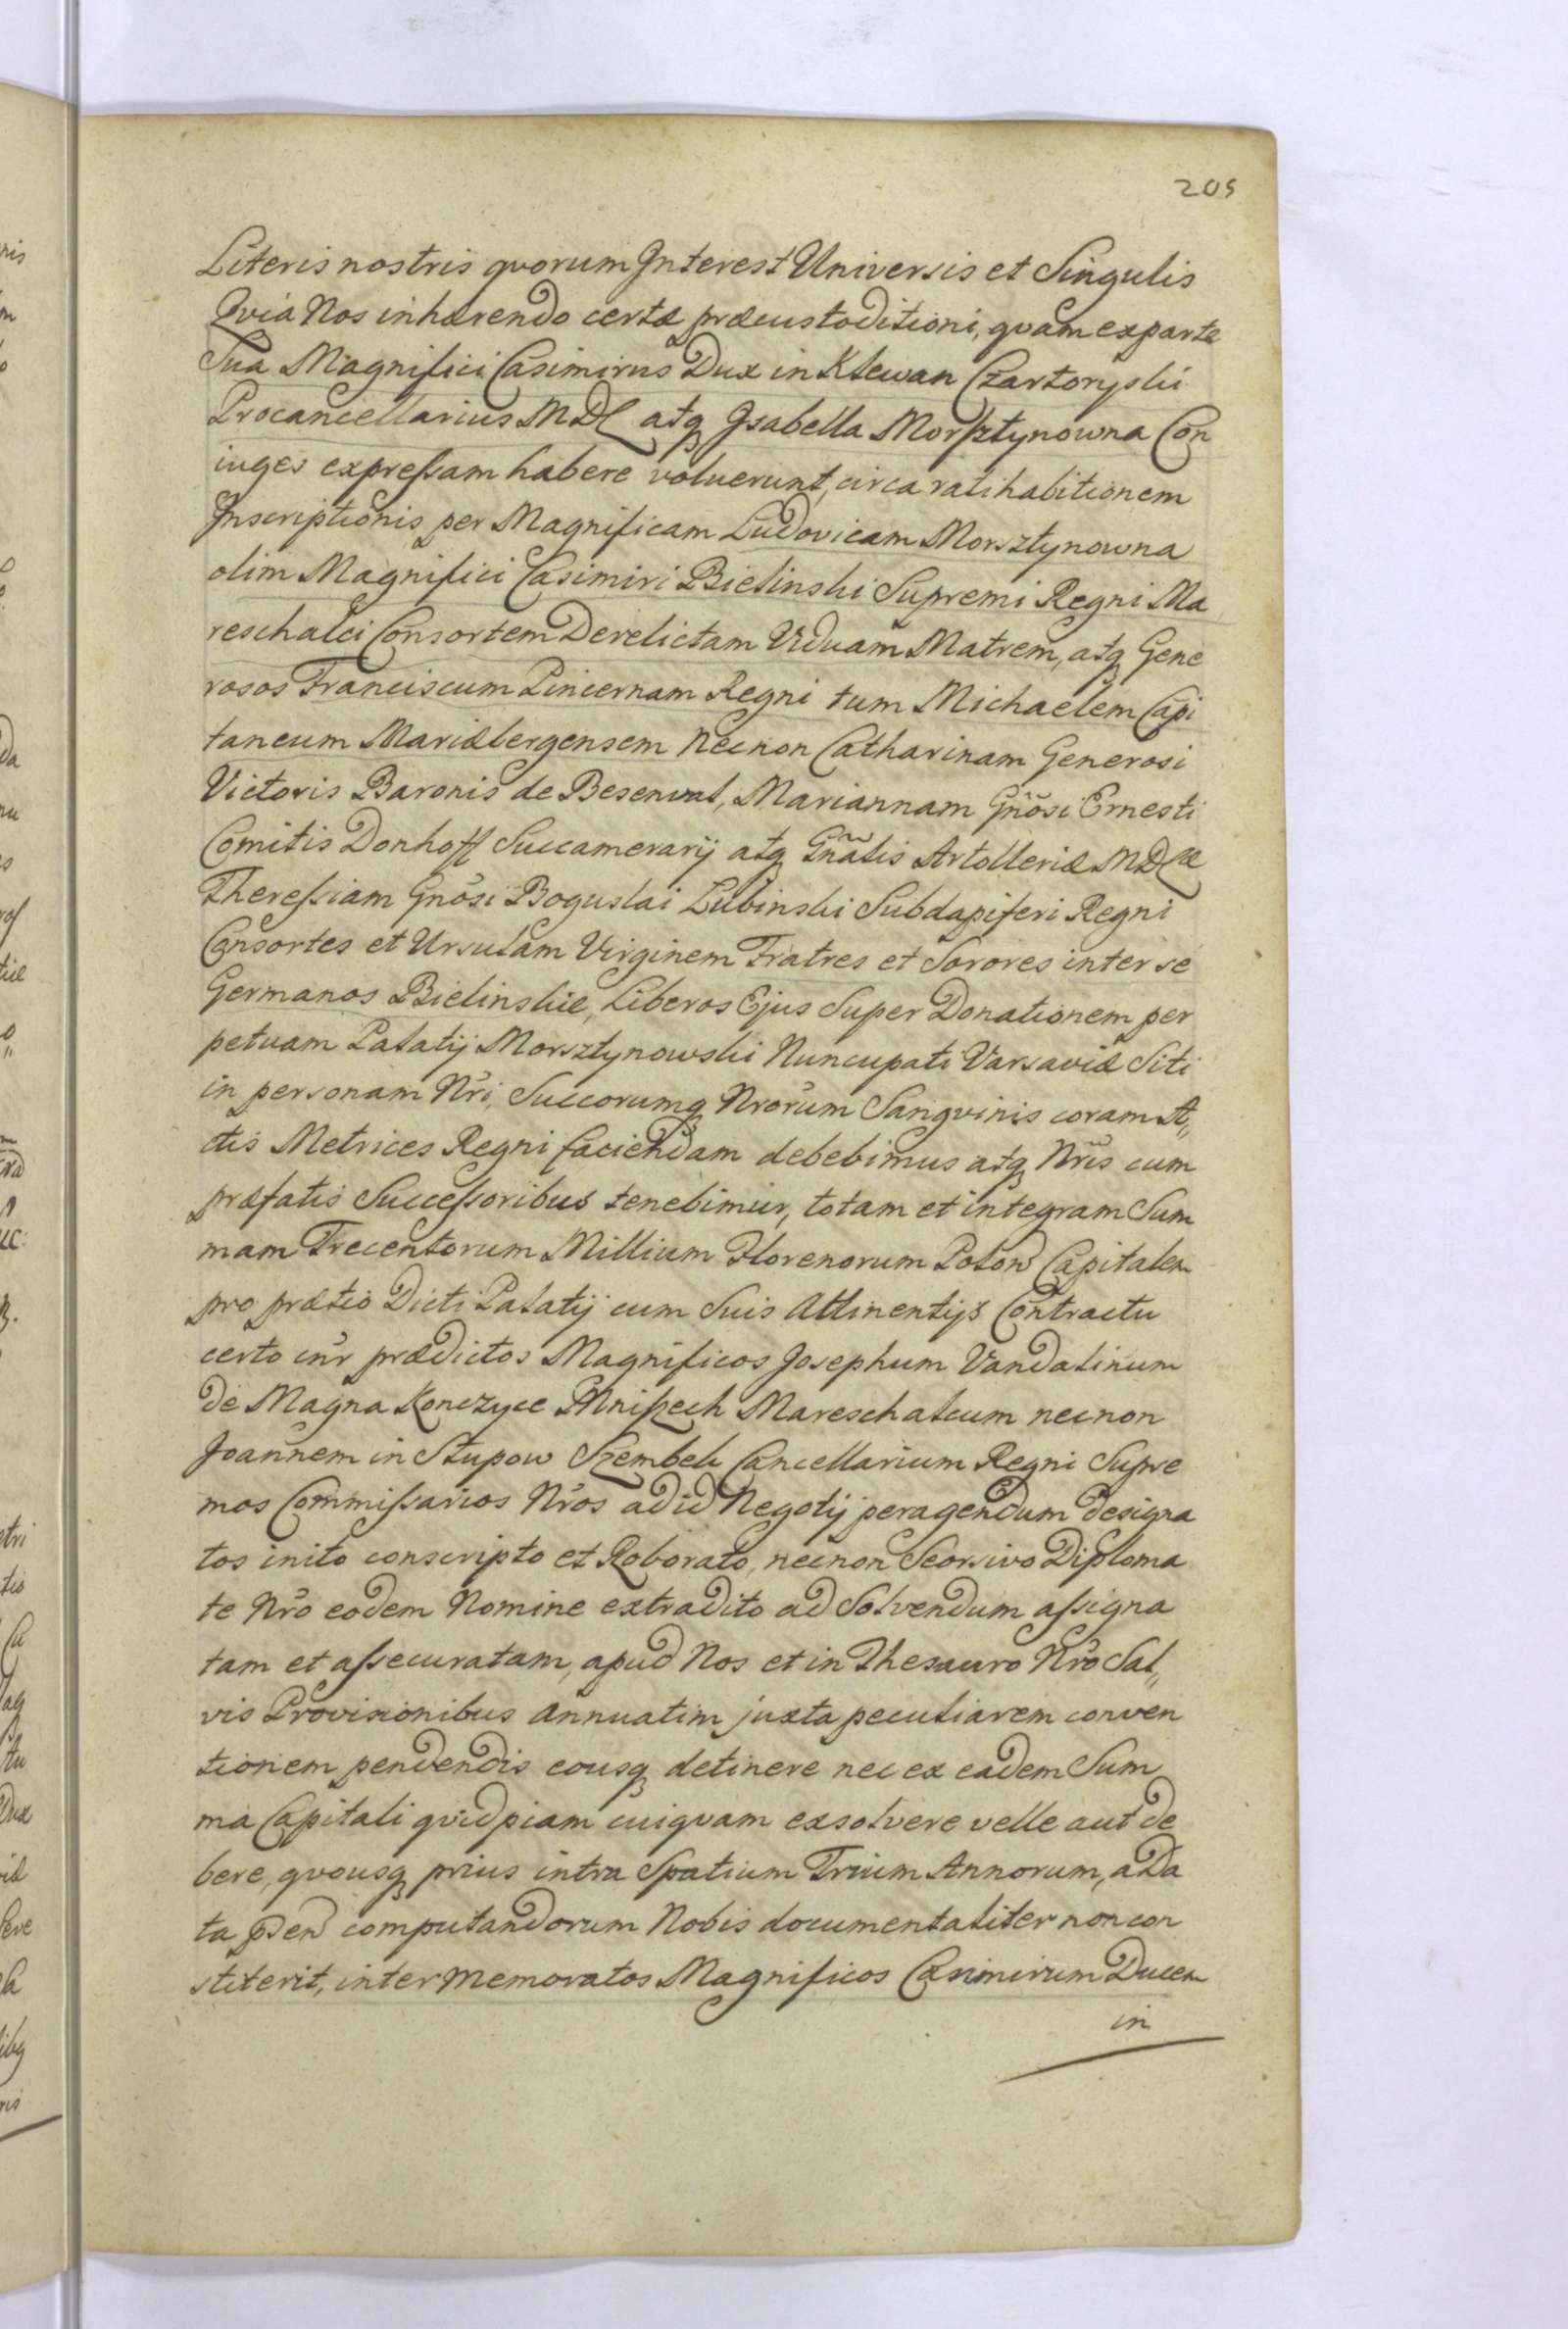 205
Literis nostris qvorum Interest Universis et Singulis
Qvia Nos inhærendo certæ præcustoditioni, qvam ex parte
Sua Magnifici Casimirus Dux in Klewan Czartoryski
Procancellarius MDL atq Isabella Morsztynowna Con
iuges expressam habere voluerunt, circa ratihabitionem
Inscriptionis per Magnificam Ludovicam Morsztynowna
olim Magnifici Casimiri Bielinski Supremi Regni Ma
reschalci Consortem Derelictam Viduam Matrem, atq Gene
rosos Franciscum Pincernam Regni tum Michaelem Capi
taneum Mariæbergensem necnon Catharinam Generosi
Victoris Baronis de Besenval, Mariannam Gnõsi Ernesti
Comitis Donhoff Succamerarij atq Gnãlis Artolleriæ MDLæ
Theressiam Gnõsi Boguslai Lubinski Subdapiferi Regni
Consortes et Ursulam Virginem Fratres et Sorores inter se
Germanos Bielinskie, Liberos Ejus Super Donationem per
petuam Palatij Morsztynowski Nuncupati Varsaviæ Siti
in personam Nri, Succorumq Nrorum Sangvinis coram A„
ctis Metrices Regni faciendam debebimus atq Nris cum
præfatis Successoribus tenebimur, totam et integram Sum
mam Trecentorum Millium Florenorum Polon Capitalem
pro prætio Dicti Palatij cum Suis Attinentijs Contractu
certo inr prædictos Magnificos Josephum Vandalinum
de Magna Konczyce Mniszech Mareschalcum necnon
Joannem in Slupow Szembek Cancellarium Regni Supre
mos Commissarios Nros ad id Negotij peragendum designa
tos inito conscripto et Roborato, necnon Seorsivo Diploma
te Nro eodem Nomine extradito ad Solvendum assigna
tam et assecuratam, apud Nos et in Thesauro Nro Sal„
vis Provisionibus annuatim juxta peculiarem conven
tionem pendendis eousq detinere nec ex eadem Sum
ma Capitali qvidpiam cuiqvam exsolvere velle aut de
bere, qvousq prius intra Spatium Trium Annorum, a Da
ta computandorum Nobis documentaliter non con
stiterit, inter memoratos Magnificos Casimirum Ducem
in